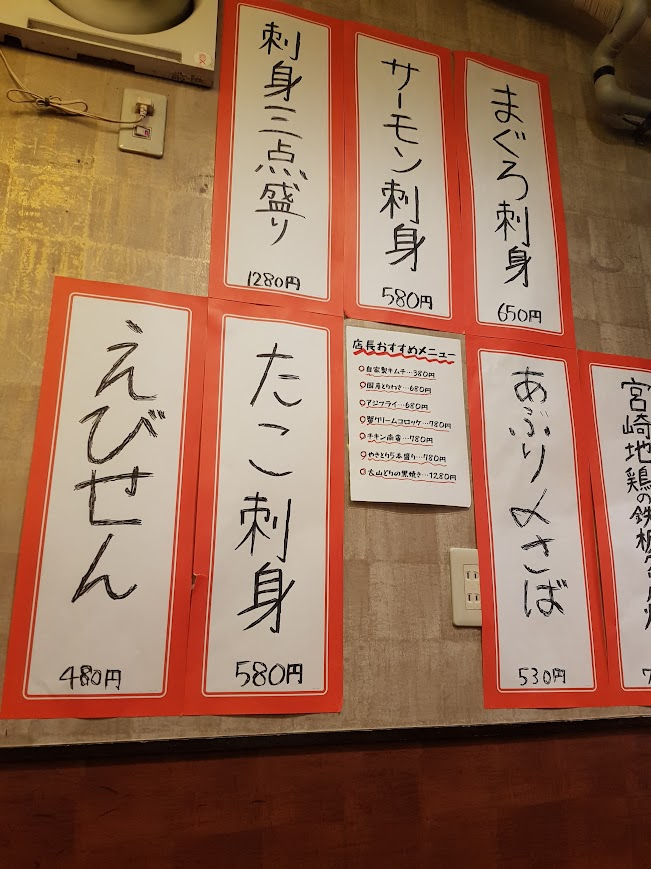 まぐろ刺身
650円
サーモン刺身
580円
刺身三点盛り
1280円
宮崎地鶏の鉄板
あぶり〆さば
530円
店長おすすめメニュー
自家製キムチ…380円
国産とりわさ…680円
アジフライ…680円
蟹クリームコロッケ…780円
チキン南蛮…780円
やきとり5本盛り…780円
大山どりの黒焼き…1280円
たこ刺身
580円
えびせん
480円